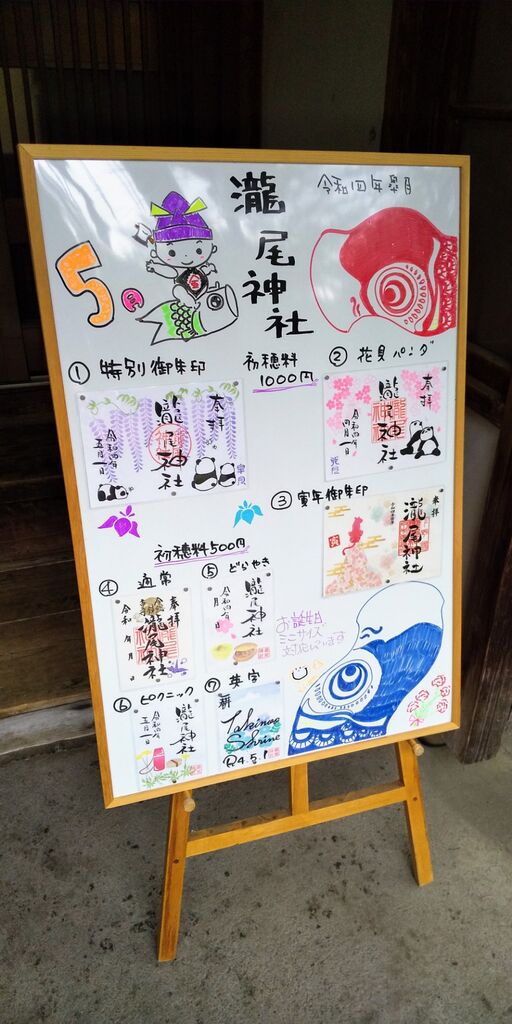 令和四年皐月
瀧尾神社
5月
① 特別御朱印
初穂料
1000円
② 花見パンダ
奉拝
瀧尾神社
令和四年
五月一日
皐月
奉拝
瀧尾神社
令和四年
四月一日
③ 寅年御朱印
奉拝
瀧尾神社
寅
初穂料500円
④ 通常
奉拝
瀧尾神社
令和 年 月 日
⑤ どらやき
瀧尾神社
⑥ ピクニック
瀧尾神社
令和四年
五月一日
⑦ 英字
Takinao
Shrine
R4.5.1
お誕生日
ミニサイズ
対応しています